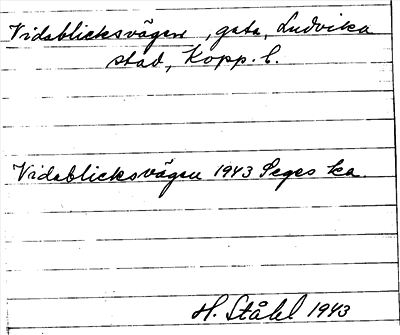 Vidablicksvägen, gata, Ludvika
stad, Kopp. l.
Vidablicksvägen 1943 Seges ka.
H. Ståhl 1943